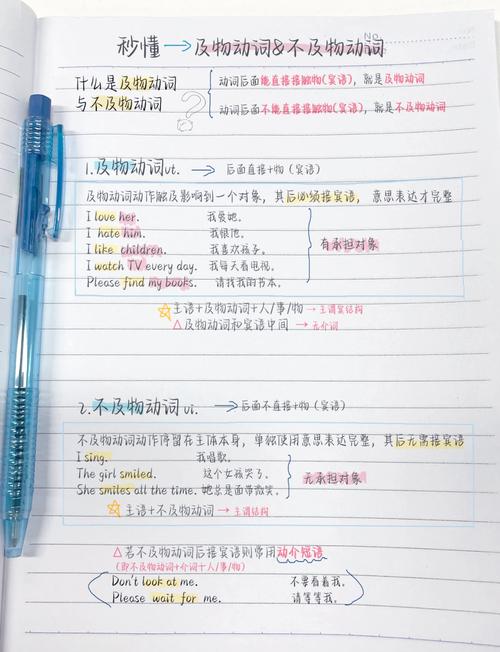 秒懂→及物动词&不及物动词
什么是及物动词与不及物动词?
动词后面能直接接触物(宾语),就是及物动词
动词后面不能直接接触物(宾语),就是不及物动词
1.及物动词vt. → 后面直接+物(宾语)
及物动词动作触及影响到一个对象,其后必须接宾语,意思表达才完整
I love her. 我爱她。
I hate him. 我恨他。
I like children. 我喜欢孩子。
I watch TV every day. 我每天看电视。
Please find my books. 请找我的书本。
有承担对象
☆主语+及物动词+人/事/物→主谓宾结构
△及物动词和宾语中间→无介词
2.不及物动词vi. → 后面不直接+物(宾语)
不及物动词动作停留在主体本身,单独使用意思表达完整,其后无需接宾语
I sing. 我唱歌。
The girl smiled. 这个女孩笑了。
She smiles all the time. 她总是面带微笑。
无承担对象
☆主语+不及物动词→主谓结构
△若不及物动词后接宾语则常用动介短语
(即不及物动词+介词+人/事/物)
Don't look at me. 不要看着我。
Please wait for me. 请等等我。